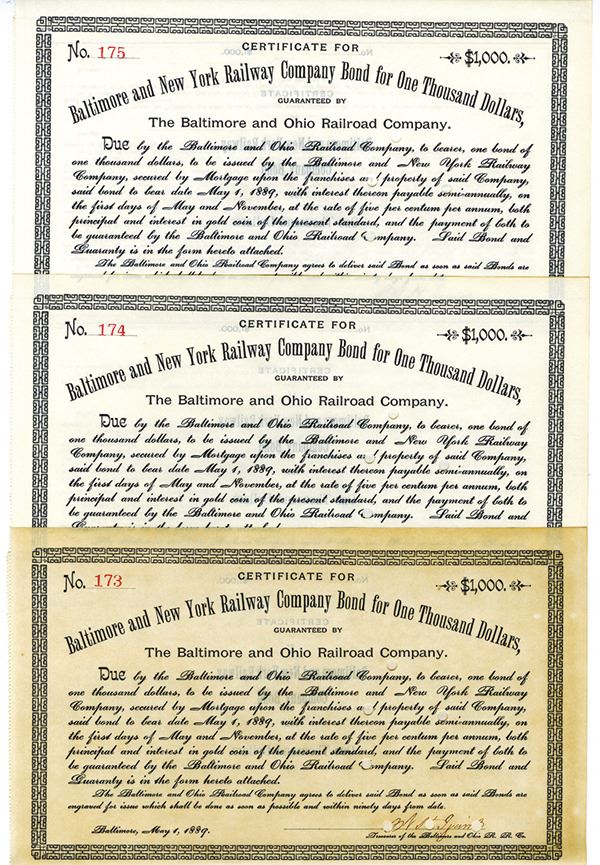 No. 175
CERTIFICATE FOR
$1,000.
Baltimore and New York Railway Company Bond for One Thousand Dollars,
GUARANTEED BY
The Baltimore and Ohio Railroad Company.
Due by the Baltimore and Ohio Railroad Company, to bearer, one bond of
one thousand dollars, to be issued by the Baltimore and New York Railway
Company, secured by Mortgage upon the franchises a d property of said Company,
said bond to bear date May 1, 1889, with interest thereon payable semi-annually, on
the first days of May and November, at the rate of five per centum per annum, both
principal and interest in gold coin of the present standard, and the payment of both to
be guaranteed by the Baltimore and Ohio Railroad Company. Said Bond and
Guaranty is in the form hereto attached.
The Baltimore and Ohio Railroad Company agrees to deliver said Bond as soon as said Bonds are
No. 174
CERTIFICATE FOR
$1,000.
Baltimore and New York Railway Company Bond for One Thousand Dollars,
GUARANTEED BY
The Baltimore and Ohio Railroad Company.
Due by the Baltimore and Ohio Railroad Company, to bearer, one bond of
one thousand dollars, to be issued by the Baltimore and New York Railway
Company, secured by Mortgage upon the franchises a d property of said Company,
said bond to bear date May 1, 1889, with interest thereon payable semi-annually, on
the first days of May and November, at the rate of five per centum per annum, both
principal and interest in gold coin of the present standard, and the payment of both to
be guaranteed by the Baltimore and Ohio Railroad Company. Said Bond and
No. 173
CERTIFICATE FOR
$1,000.
Baltimore and New York Railway Company Bond for One Thousand Dollars,
GUARANTEED BY
The Baltimore and Ohio Railroad Company.
Due by the Baltimore and Ohio Railroad Company, to bearer, one bond of
one thousand dollars, to be issued by the Baltimore and New York Railway
Company, secured by Mortgage upon the franchises a d property of said Company,
said bond to bear date May 1, 1889, with interest thereon payable semi-annually, on
the first days of May and November, at the rate of five per centum per annum, both
principal and interest in gold coin of the present standard, and the payment of both to
be guaranteed by the Baltimore and Ohio Railroad Company. Said Bond and
Guaranty is in the form hereto attached.
The Baltimore and Ohio Railroad Company agrees to deliver said Bond as soon as said Bonds are
engraved for issue which shall be done as soon as possible and within ninety days from date.
Baltimore, May 1, 1889.
Treasurer of the Baltimore and Ohio R. R. Co.